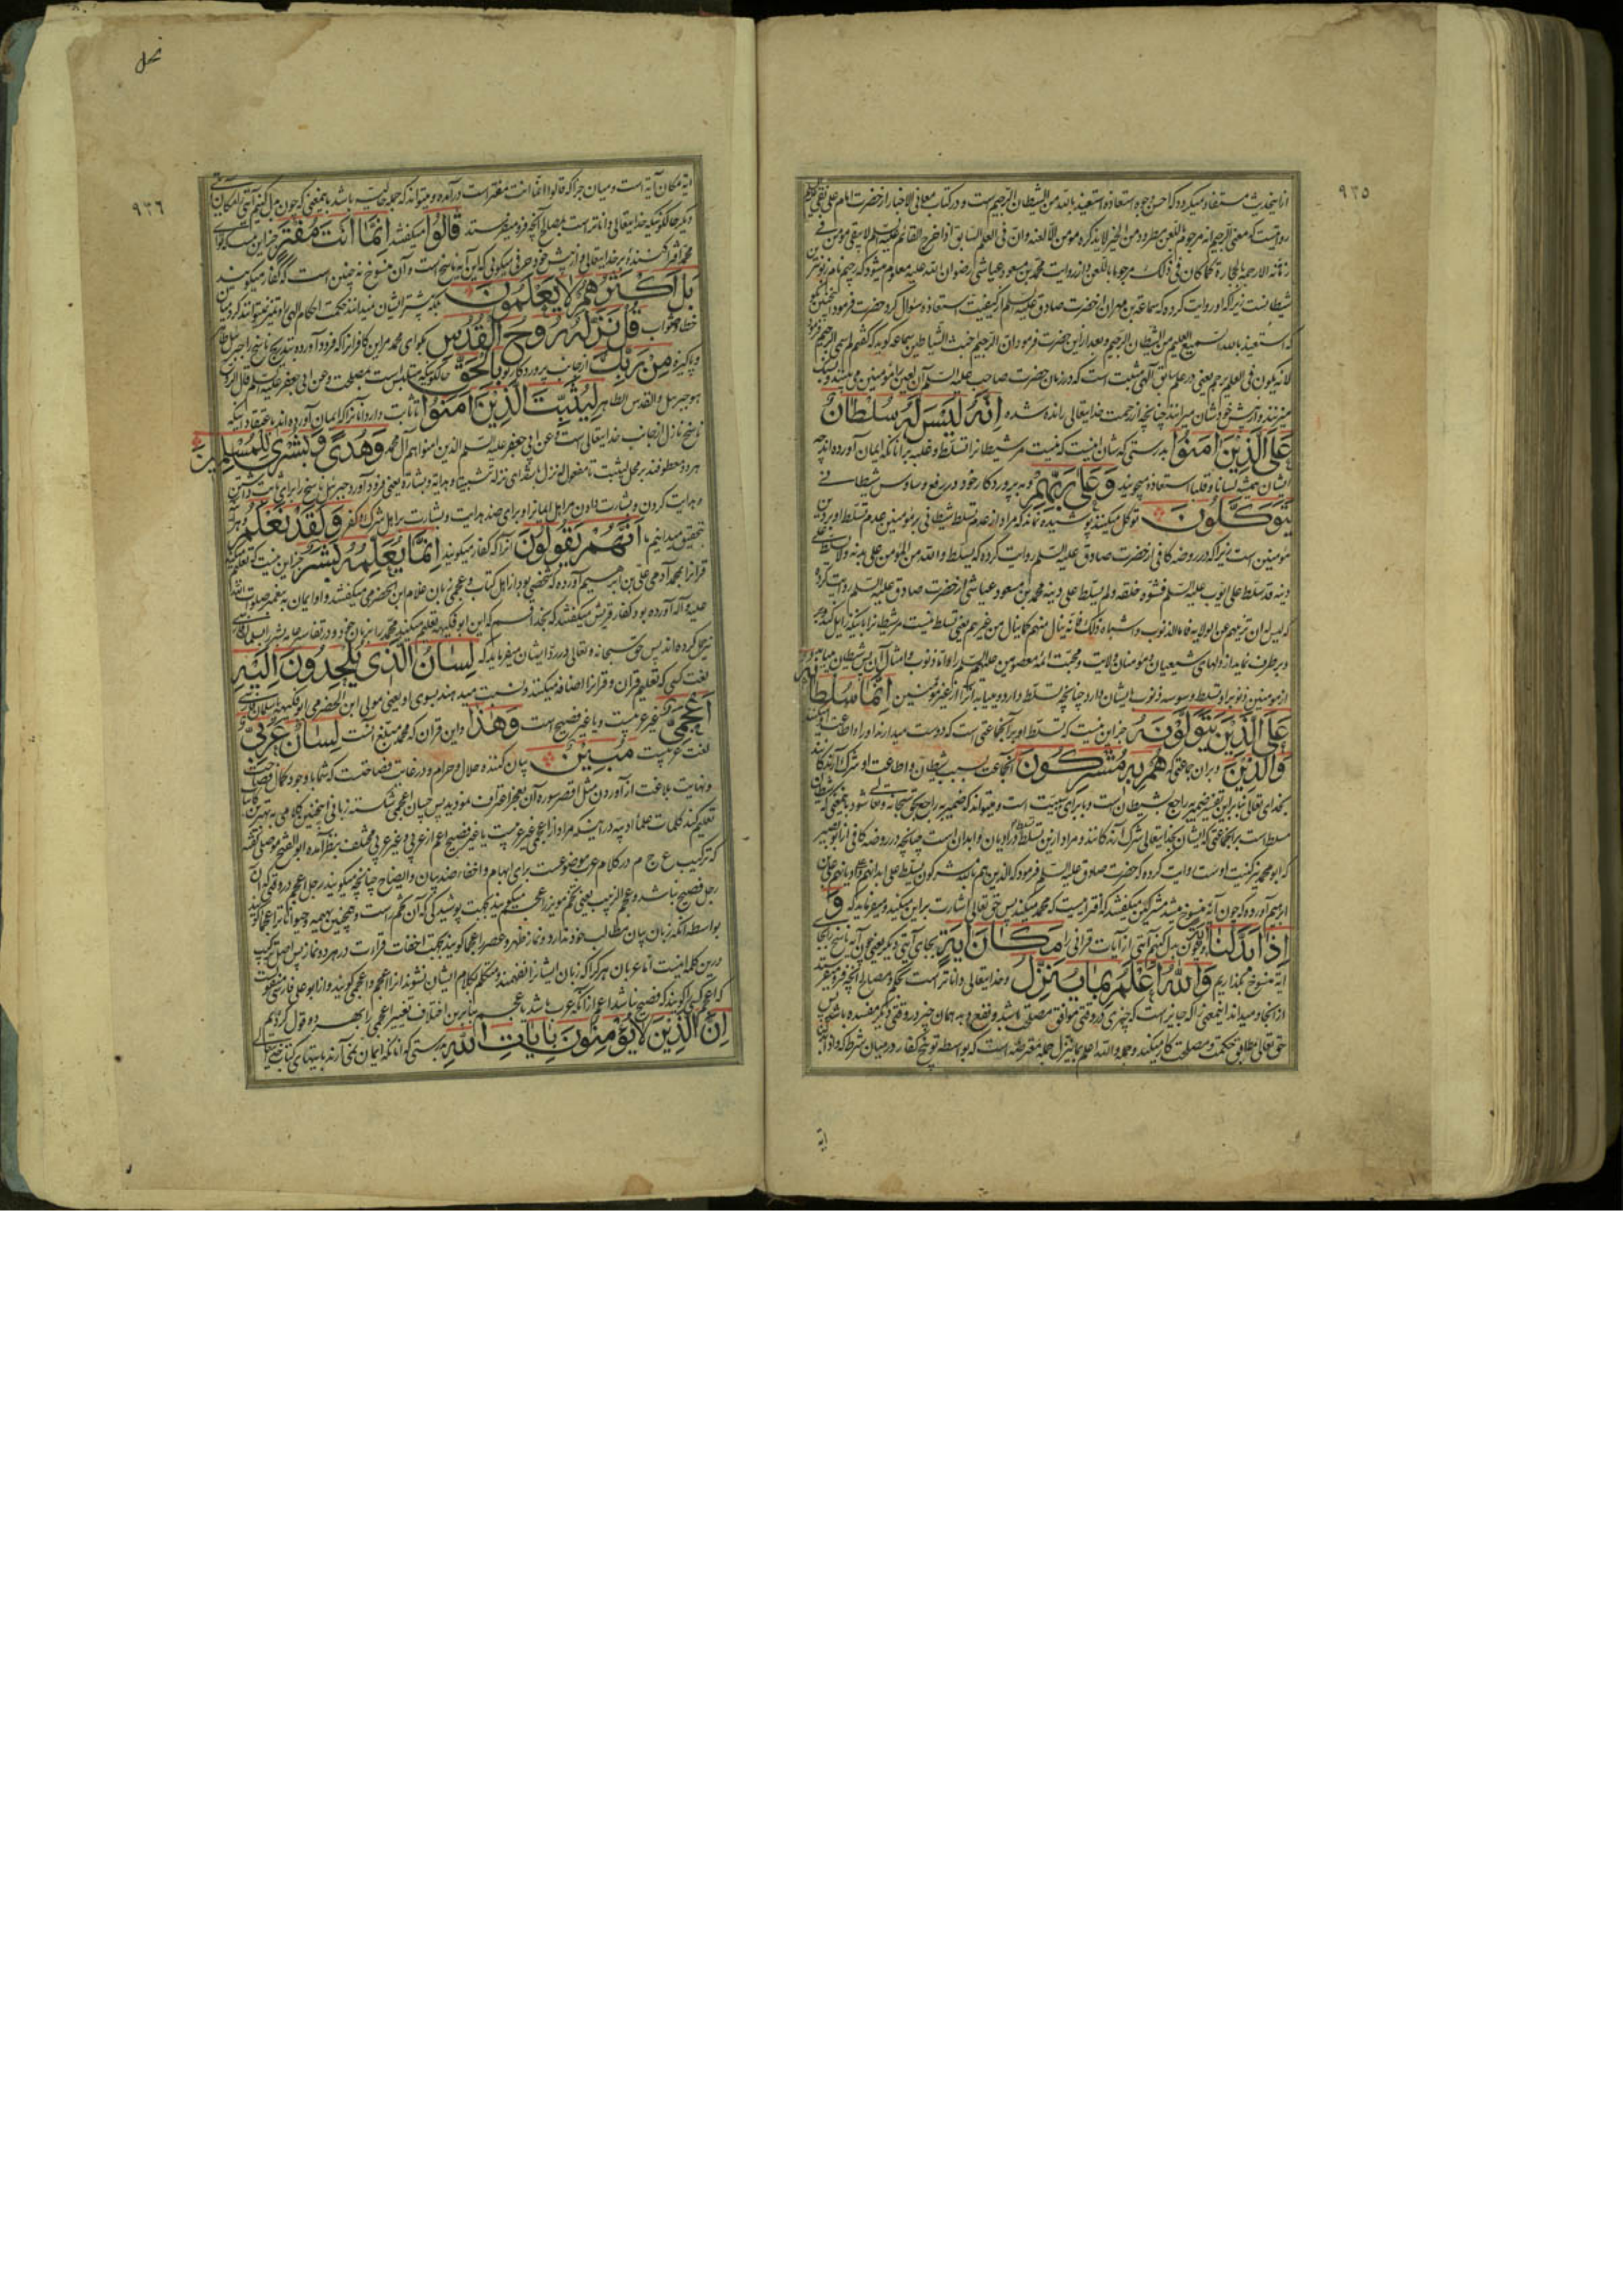 ۹۳۵
ازینحدیث مستفاد میگردد که احسن وجوه استعاذه استعیذ بالله من الشیطان الرجیم است و در کتاب معانی الاخبار از حضرت امام علی نقی
روایتست که معنی الرجیم انه مرجوم باللعن مطرود من الخیر لا یذکره مومن الا لعنه وان فی العلم السابق اذا خرج القائم علیه السلم لا یبقی مؤمن فی
زمانه الا رجمه بالحجارة کما کان قبل ذلک مرجوما باللعن و از روایت محمد بن مسعود عیاشی رضوان الله علیه معلوم میشود که رجیم نام
شیطانست زیرا که او روایت کرده که سماعة بن مهران از حضرت صادق علیه السلم از کیفیت استعاذه سؤال کرد حضرت فرمود
که استعیذ بالله السمیع العلیم من الشیطان الرجیم و بعد از این حضرت فرمود ان الرجیم اخبث الشیاطین سماعه گوید که گفتم لم سمی الرجیم فرمود
لانه یرجم یعنی در علم سابق الهی مثبت است که در زمان حضرت صاحب علیه السلم آن لعین را مؤمنین می بینند و بسنگ
میزنند و از پیش خودشان میرانند چنانچه از رحمت خدایتعالی رانده شده اِنَّهُ لَيْسَ لَهُ سُلْطَانٌ
عَلَى الَّذِينَ اٰمَنُوا بدرستی که شان اینست که نیست مر شیطانرا تسلط و غلبه بر آنانکه ایمان آورده اند چه
ایشان همیشه لسانا و قلبا استعاذه میجویند وَعَلٰى رَبِّهِمْ و به پروردگار خود در رفع وساوس شیطانی
يَتَوَكَّلُونَ توکل میکنند پوشیده نماند که مراد از عدم تسلط شیطان بر مؤمنین عدم تسلط او بر دین
مؤمنین است زیرا که در روضه کافی از حضرت صادق علیه السلم روایت کرده که یسلط والله من المؤمن علی بدنه ولا یسلط علی
دینه قد سلط علی ایوب علیه السلم فشوه خلقه ولم یسلط علی دینه محمد بن مسعود عیاشی از حضرت صادق علیه السلم روایت کرده
که لیس له ان یزیلهم عن الولایه فاما الذنوب واشباه ذلک فانه ینال منهم کما ینال من غیرهم یعنی تسلط نیست مر شیطانرا باینکه زایل کند
و بر طرف نماید از دلهای شیعیان و مؤمنان ولایت و محبت ائمه معصومین علیهم السلم را و اما ذنوب و امثال آن پس شیطان میابد
از مؤمنین ذنوب را و تسلط و وسوسه ذنوب بایشان دارد چنانچه تسلط دارد و میابد آنرا از غیر مؤمنین اِنَّمَا سُلْطَانُهُ
عَلَى الَّذِينَ يَتَوَلَّوْنَهُ جز این نیست که تسلط او بر آنجماعتی است که دوست میدارند او را و اطاعت او میکنند
وَالَّذِينَ و بر آن جماعتی که هُمْ بِهِ مُشْرِكُونَ آنجماعت بسبب شیطان و اطاعت او شرک آرندگانند
بخدای تعالی بنا بر این تفسیر ضمیر به راجع بشیطان است و با برای سببیت است و میتواند که ضمیر به راجع بحق سبحانه و تعالی شود باینمعنی که شیطان
مسلط است بر آنجماعتی که ایشان بخدایتعالی شرک آرندگانند و مراد ازین تسلط تسلط در ادیان و ابدان است چنانچه در روضه کافی از ابو بصیر
که ابو محمد نیز کنیت اوست روایت کرده که حضرت صادق علیه السلم فرمود که الذین هم بالله مشرکون یسلط علی ابدانهم وادیانهم علی بن
ابرهیم آورده که چون آیه منسوخ میشد مشرکین میگفتند که افترائیست که محمد میکند پس حق تعالی اشارت بر این میکند و میفرماید که وَ
اِذَا بَدَّلْنَا و چون بدل کنیم آیتی از آیات قرآنی را مَكَانَ اٰيَةٍ بجای آیتی دیگر یعنی چون آیه ناسخ را بجای
آیه منسوخ بگذاریم وَاللّٰهُ اَعْلَمُ بِمَا يُنَزِّلُ و خدایتعالی داناتر است بحکم و مصالح آنچه فرو میفرستد
از آنجا و میداند اینمعنی را که جایز است که چیزی در وقتی موافق مصلحت باشد و نفع دهد همان چیز در وقتی دیگر مفسده باشد پس
حق تعالی مطابق حکمت و مصلحت کار میکند و جمله والله اعلم بما ینزل جمله معترضه است که بواسطه توبیخ کفار در میان شرط که واذا بدلنا
آیة
نحل
۹۳۶
آیة مکان آیة است و میان جزا که قالوا انما انت مفتر است در آمده و میتواند که جمله حالیه باشد باینمعنی که چون بدل کنیم آیتی را مکان آیتی
دیگر حالکونیکه خدایتعالی داناتر است بمصالح آنچه فرو میفرستد قَالُوا میگفتند اِنَّمَا اَنْتَ مُفْتَرٍ جز این نیست که تو ای
محمد افترا کننده بر خدایتعالی و از پیش خود حرفی میگوئی که این آیه ناسخ است و آن منسوخ نه چنین است که کفار میگویند
بَلْ اَكْثَرُهُمْ لَا يَعْلَمُونَ بلکه بیشتر ایشان نمیدانند حکمت احکام الهی را و تمیز نمیتوانند کرد میان
خطا و صواب قُلْ نَزَّلَهُ رُوحُ الْقُدُسِ بگو ای محمد مر این کافرانرا که فرود آورده بتدریج ناسخ را جبرئیل
و پاکیزه مِنْ رَبِّكَ از جانب پروردگار تو بِالْحَقِّ حالکونیکه متلبس است بمصلحت و عن ابی جعفر علیه السلم قال الروح
هو جبرئیل والقدس الطاهر لِيُثَبِّتَ الَّذِينَ اٰمَنُوا تا ثابت دارد آنانرا که ایمان آورده اند باعتقاد اینکه
ناسخ نازل از جانب خدایتعالی است و عن ابی جعفر علیه السلم الذین امنوا هم آل محمد وَهُدًى وَبُشْرٰى لِلْمُسْلِمِينَ
هر دو معطوفند بر محل لیثبت تا مفعول له نزل باشند ای نزله تثبیتا وهدایة وبشارة یعنی فرود آورد جبرئیل ناسخ را برای ثابت داشتن
و هدایت کردن و بشارت دادن مر اهل ایمانرا و برای ضد هدایت و بشارت بر اهل شرک و کفر وَلَقَدْ نَعْلَمُ و هر آینه
بتحقیق میدانیم ما اَنَّهُمْ يَقُولُونَ آنرا که کفار میگویند اِنَّمَا يُعَلِّمُهُ بَشَرٌ جز این نیست که تعلیم میکند
قرآنرا بمحمد آدمی علی بن ابرهیم آورده که شخصی بود از اهل کتاب و عجمی زبان غلام ابن الحضرمی میگفتند و او ایمان به پیغمبر صلوات الله
علیه و آله آورده بود کفار قریش میگفتند که بخدا قسم که این ابو فکیهه تعلیم میکند محمد را بزبان خود و در تفاسیر عامه بشر را بسلمان فارسی
نیز حمل کرده اند پس حق سبحانه و تعالی در رد ایشان میفرماید که لِسَانُ الَّذِي يُلْحِدُونَ اِلَيْهِ
لغت کسی که تعلیم قرآن و قرآنرا اضافه میکنند و نسبت میدهند بسوی او یعنی مولی ابن الحضرمی ابو فکیهه یا سلمان فارسی
اَعْجَمِيٌّ غیر عربیست و یا غیر فصیح است وَهٰذَا و این قرآن که محمد مبلغ آنست لِسَانٌ عَرَبِيٌّ
لغت عربیست مُبِينٌ بیان کننده حلال و حرام و در غایت فصاحت که شما با وجود کمال فصاحت
و نهایت بلاغت از آوردن مثل اقصر سوره آن بعجز اعتراف نمودید پس چسان اعجمی شکسته زبانی اینچنین کلامی به بهترین کاینات
تعلیم کند کلمات علماء ادبیه در اینکه مراد از اعجمی غیر عربیست یا غیر فصیح اعم از عربی و غیر عربی مختلف بنظر آمده ابو الفتح موصلی گفته
که ترکیب ع ج م در کلام عرب موضوعست برای ابهام و اخفاء ضد بیان و ایضاح چنانچه میگویند رجل اعجم در وقتی که آن
رجل فصیح نباشد و عجم الزبیب یعنی تخم مویز را عجم میگویند بجهت پوشیدگی که آن تخم راست و همچنین بهیمه و حیوانات را عجما گویند
بواسطه آنکه زبان بیان مطالب خود ندارد و نماز ظهر و عصر را عجما گویند بجهت اخفات قراءت در هر دو نماز پس اصل ترکیب
درین کلمه اینست اما عربان هر کرا که زبان ایشانرا نفهمند و متکلم بکلام ایشان نشوند او را اعجم و اعجمی گویند و از ابو علی فارسی منقولست
که اعجم کسی را گویند که فصیح نباشد اعم از آنکه عرب باشد یا عجم بنابرین اختلاف تفسیر اعجمی را بهر دو قول کردیم
اِنَّ الَّذِينَ لَا يُؤْمِنُونَ بِاٰيَاتِ اللّٰهِ بدرستی که آنانکه ایمان نمی آرند بآیتهای کتاب خدایتعالی